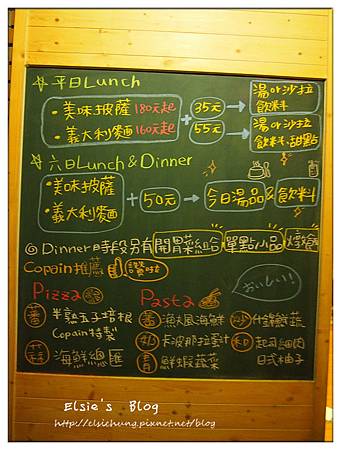 平日Lunch
・美味披薩 180元起
・義大利麵 160元起
+ 35元 → 湯or沙拉 飲料
55元 → 湯or沙拉 飲料、甜點
六日Lunch & Dinner
・美味披薩
・義大利麵
+ 50元 → 今日湯品 & 飲料
◎ Dinner時段另有開胃菜組合 單點小品 燉飯
Copain推薦 讚啦
おいしい!
Pizza
蕃 半熟玉子培根
Copain特製
蒜 海鮮總匯
Pasta
蕃 漁夫風海鮮
奶 卡波那拉
青 鮮蝦蔬菜
沙 什錦鮮蔬
和 起司
日式柚子
Elsie's Blog
http://elsiehung.pixnet.net/blog